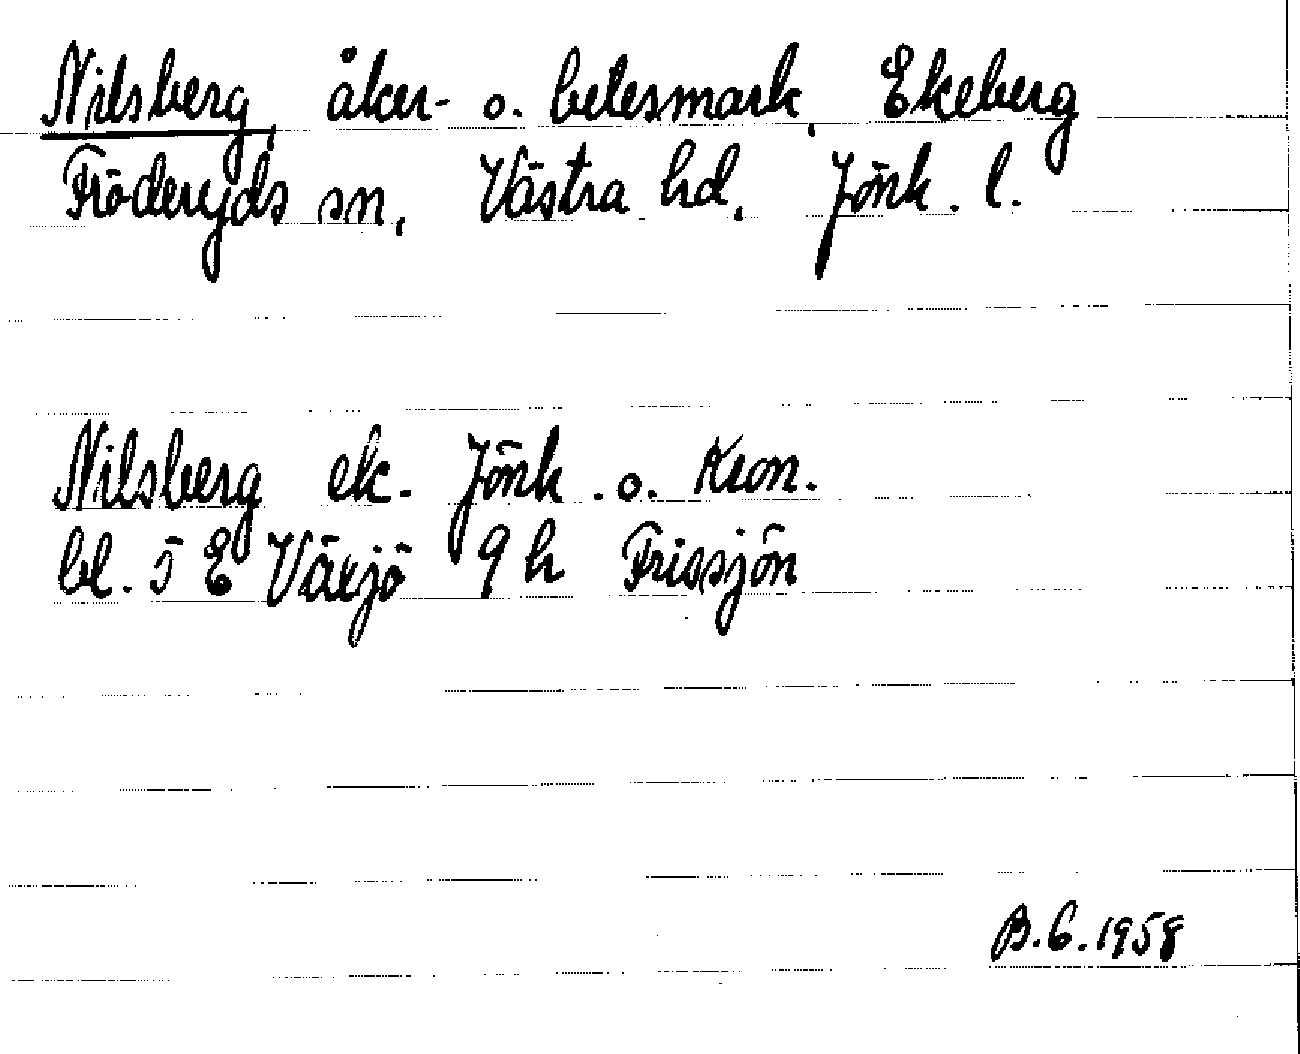 Nilsberg, åker- o. betesmark, Ekeberg
Fröderyds sn, Västra hd, Jönk. l.
Nilsberg ek. Jönk. o. Kron.
bl. 5 E Växjö 9 h Frissjön
B.G.1958